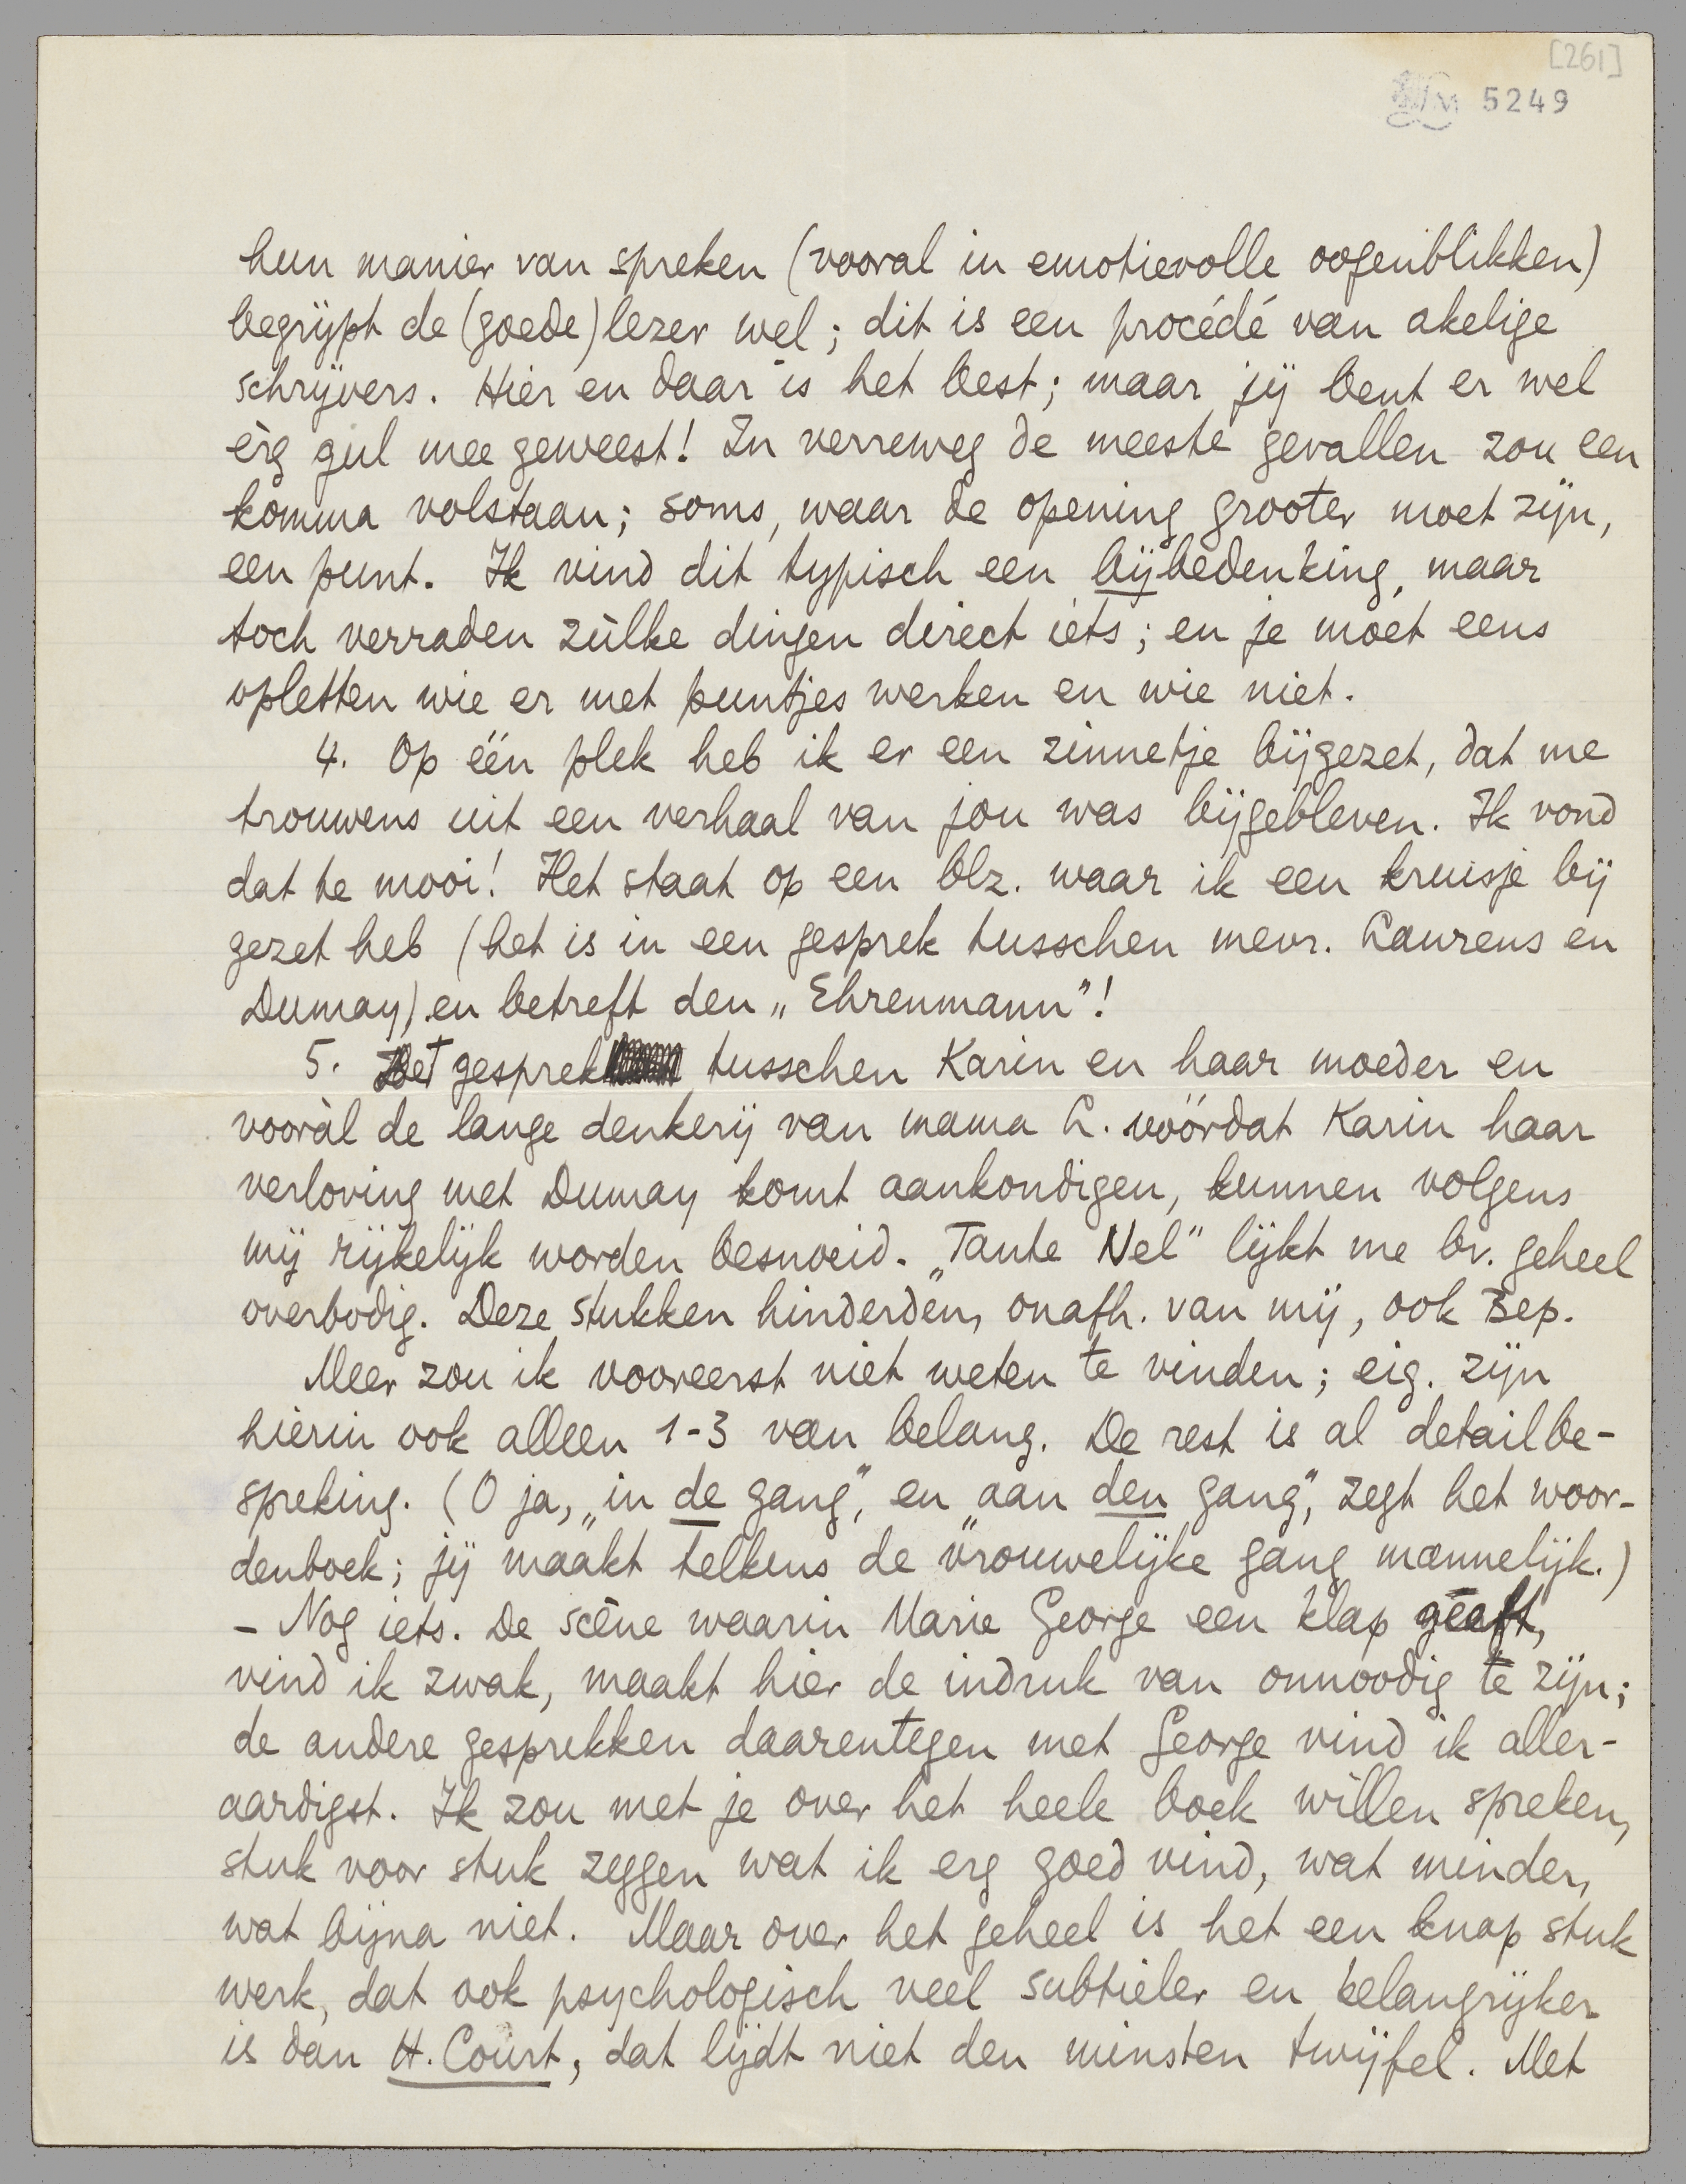 [261]
LM 5249
hun manier van spreken (vooral in emotievolle oogenblikken)
begrijpt de (goede) lezer wel; dit is een procédé van akelige
schrijvers. Hier en daar is het best; maar jij bent er wel
èrg gul mee geweest! In verreweg de meeste gevallen zou een
komma volstaan; soms, waar de opening grooter moet zijn,
een punt. Ik vind dit typisch een bijbedenking, maar
toch verraden zùlke dingen direct iets; en je moet eens
opletten wie er met puntjes werken en wie niet.
4. Op één plek heb ik er een zinnetje bijgezet, dat me
trouwens uit een verhaal van jou was bijgebleven. Ik vond
dat te mooi! Het staat op een blz. waar ik een kruisje bij
gezet heb (het is in een gesprek tusschen mevr. Laurens en
Dumay) en betreft den „Ehrenmann”!
5. Het gesprek tusschen Karin en haar moeder en
vooràl de lange denkerij van mama L. vóórdat Karin haar
verloving met Dumay komt aankondigen, kunnen volgens
mij rijkelijk worden besnoeid. „Tante Nel” lijkt me bv. geheel
overbodig. Deze stukken hinderden, onafh. van mij, ook Bep.
Meer zou ik vooreerst niet weten te vinden; eig. zijn
hierin ook alleen 1-3 van belang. De rest is al detailbe-
spreking. (O ja, „in de gang”, en „aan den gang”, zegt het woor-
denboek; jij maakt telkens de vrouwelijke gang mannelijk.)
– Nog iets. De scène waarin Marie George een klap geeft,
vind ik zwak, maakt hier de indruk van onnoodig te zijn;
de andere gesprekken daarentegen met George vind ik aller-
aardigst. Ik zou met je over het heele boek willen spreken,
stuk voor stuk zeggen wat ik erg goed vind, wat minder,
wat bijna niet. Maar over het geheel is het een knap stuk
werk, dat ook psychologisch veel subtieler en belangrijker
is dan H. Court, dat lijdt niet den minsten twijfel. Met